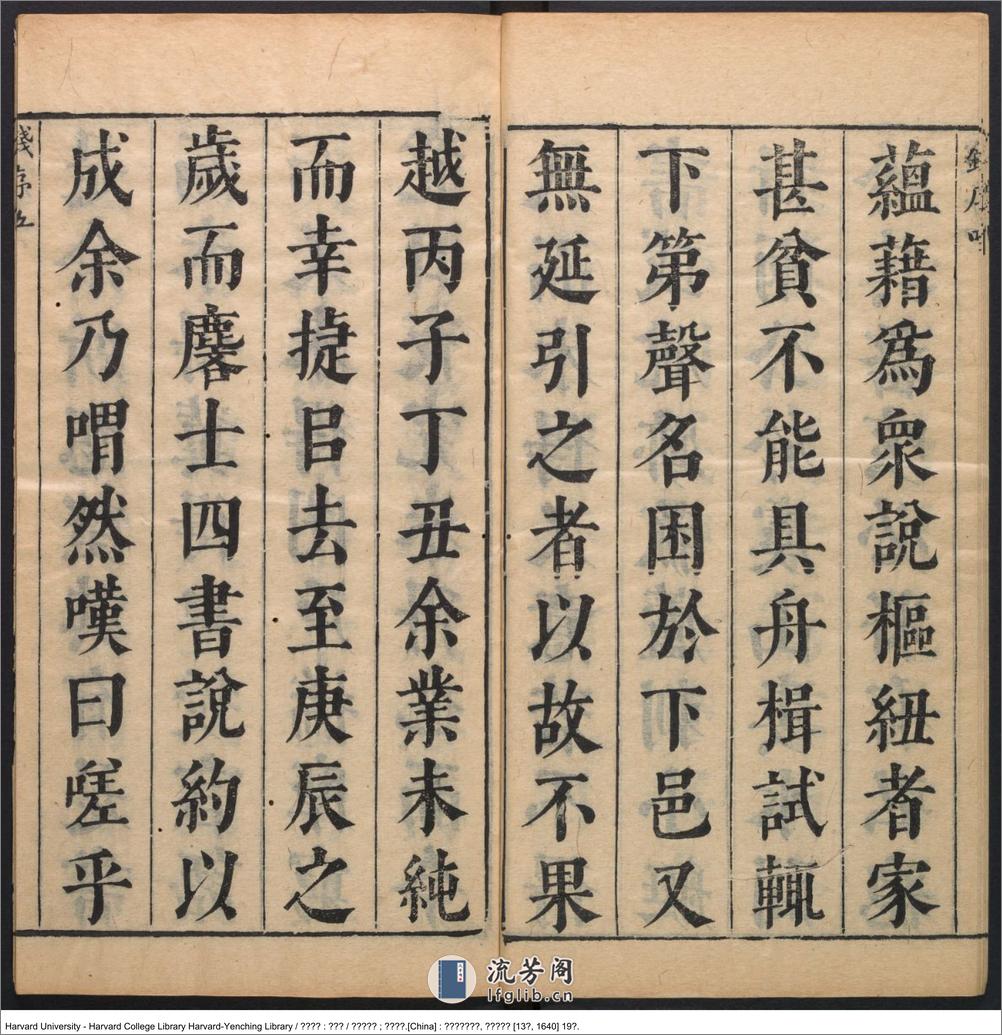 蘊藉爲衆說樞紐者家
甚貧不能具舟楫試輒
下第聲名困於下邑又
無延引之者以故不果
越丙子丁丑余業未純
而幸捷㠯去至庚辰之
歲而麐士四書說約以
成余乃喟然嘆曰嗟乎
錢序五
流芳阁
lfglib.cn
Harvard University - Harvard College Library Harvard-Yenching Library / ???? : ??? / ????? ; ????.[China] : ???????, ????? [13?, 1640] 19?.